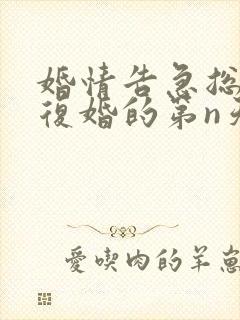 婚情告急总
復婚的第n天
愛喫肉的羊崽